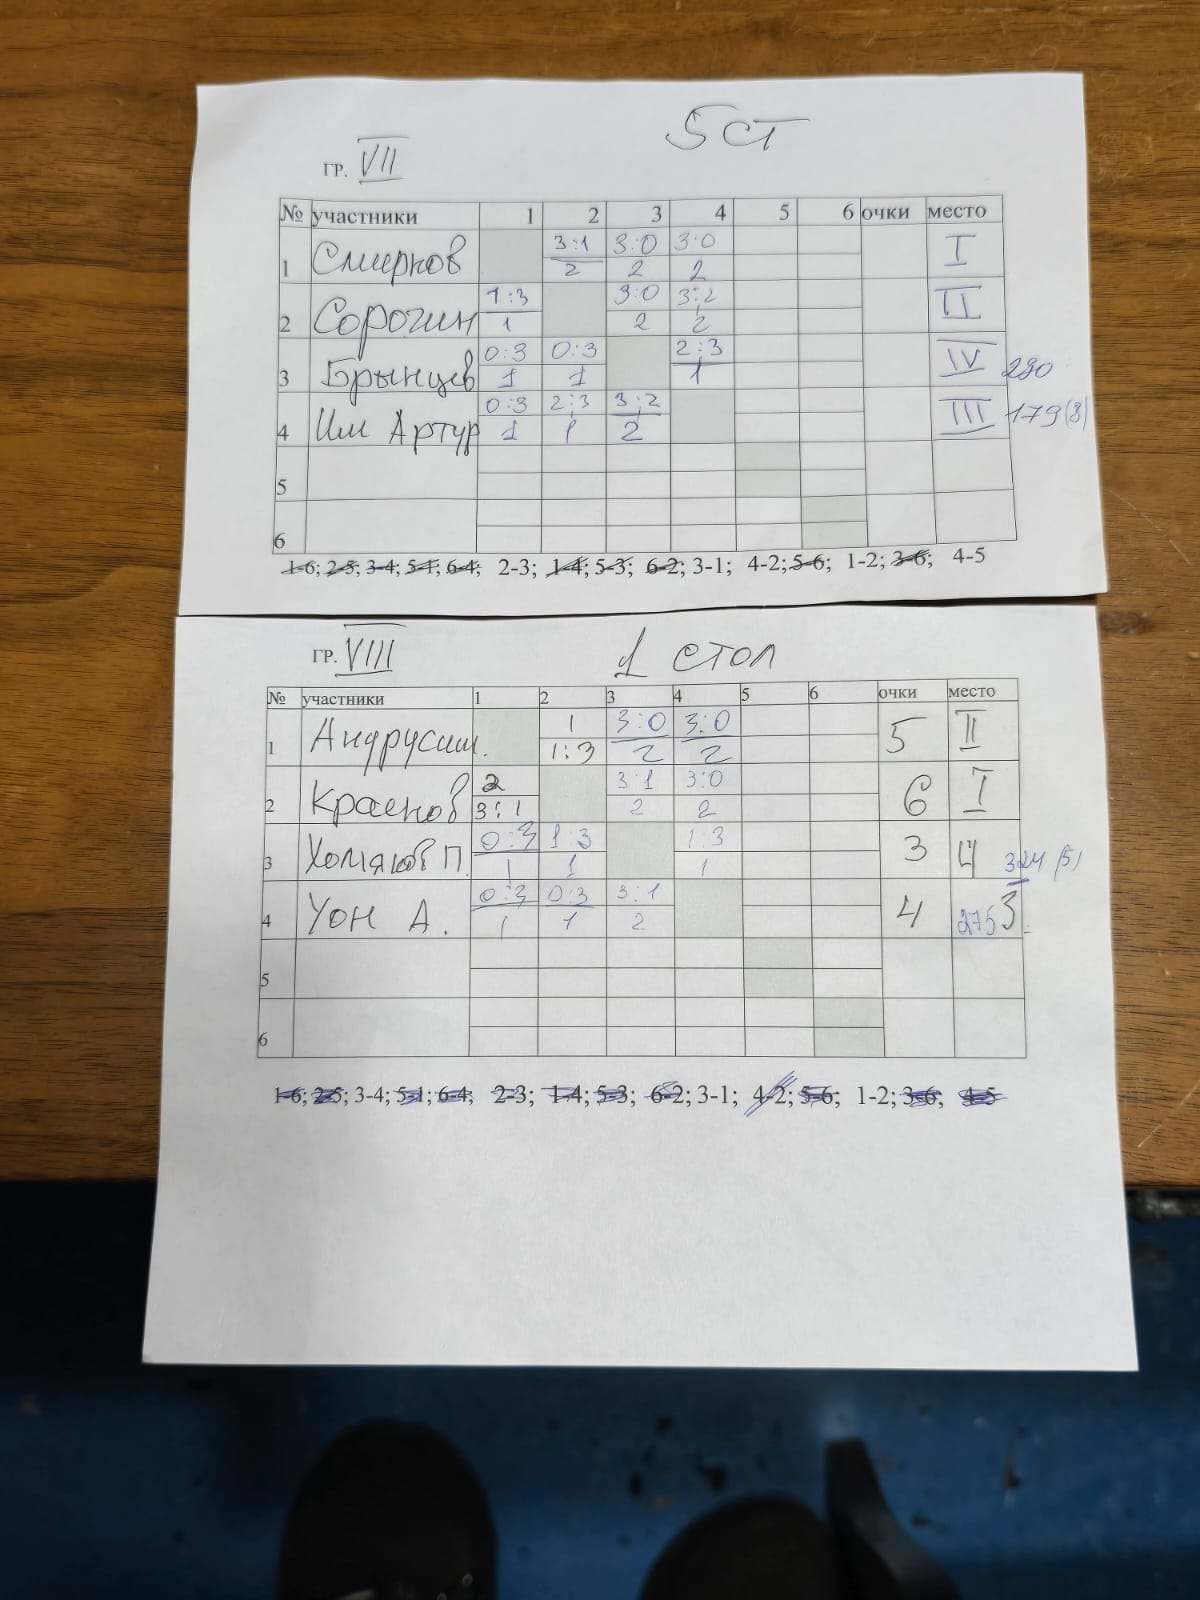 5 СТ
ГР. VII
№ участники 1 2 3 4 5 6 очки место
1 Смирнов 3:1 3:0 3:0 I
2 2 2
2 Сорочин 1:3 3:0 3:2 II
1 2 2
3 Брынцев 0:3 0:3 2:3 IV 290
1 1 1
4 Им Артур 0:3 2:3 3:2 III 179(8)
1 1 2
5
6
1-6; 2-5; 3-4; 5-1; 6-4; 2-3; 1-4; 5-3; 6-2; 3-1; 4-2; 5-6; 1-2; 3-6; 4-5
ГР. VIII 1 стол
№ участники 1 2 3 4 5 6 очки место
1 Андрусиш. 1 3:0 3:0 5 II
1:3 2 2
2 Краснов 2 3:1 3:0 6 I
3:1 2 2
3 Хомяков П. 0:3 1 3 1:3 3 4 324 (5)
1 1 1
4 Уон А. 0:3 0:3 3:1 4 275 3
1 1 2
5
6
1-6; 2-5; 3-4; 5-1; 6-4; 2-3; 1-4; 5-3; 6-2; 3-1; 4-2; 5-6; 1-2; 3-6; 4-5